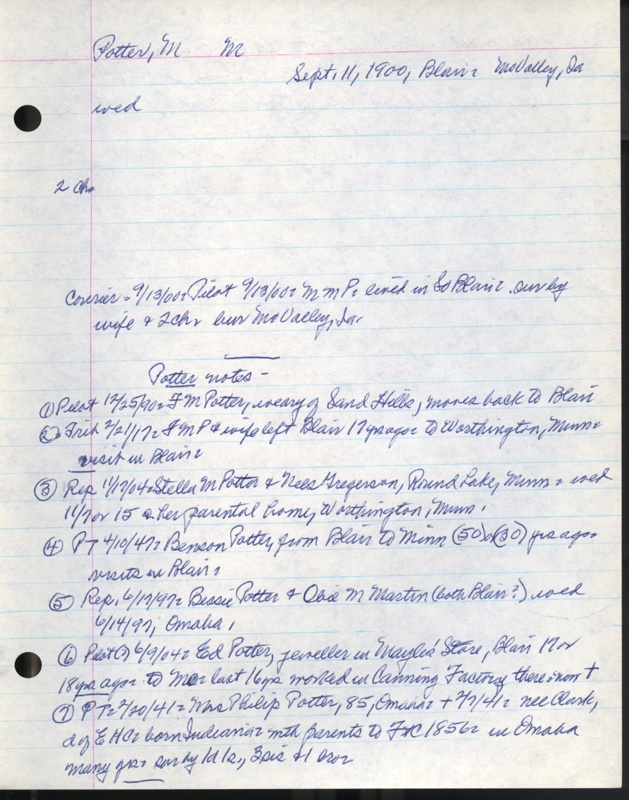 Potter, M M
Sept. 11, 1900, Blair = MoValley, Ia
wed
2 Ch
Courier = 9/13/00 = Pilot 9/13/00 = M M P = lived in So Blair = sur by
wife & 2 ch = bur MoValley, Ia.
Potter notes -
① Pilot 12/25/90 = F M Potter, weary of Sand Hills, moves back to Blair
② Trib 2/21/17 = F M P & wife left Blair 17 yrs ago = to Worthington, Minn =
visit in Blair =
③ Rep 11/17/04 = Stella M Potter & Nees Gregerson, Round Lake, Minn = wed
11/7 or 15 @ her parental home, Worthington, Minn.
④ PT 4/10/47 = Benson Potter, from Blair to Minn (50) or (30) yrs ago =
visits in Blair =
⑤ Rep, 6/17/97 = Bessie Potter & M Martin (both Blair?) wed
6/14/97, Omaha,
⑥ Pilot(?) 6/9/04 = Ed Potter, jeweller in Store, Blair 17 or
18 yrs ago = to Mo = last 16 yrs worked in Canning Factory there = now +
⑦ PT = 2/20/41 = Mrs Philip Potter, 85, Omaha = + 2/7/41 = nee Clark,
d of E H C = born Indiana = with parents to 1856 = in Omaha
many yrs = sur by 1d 1s, 3 sis & 1 bro =